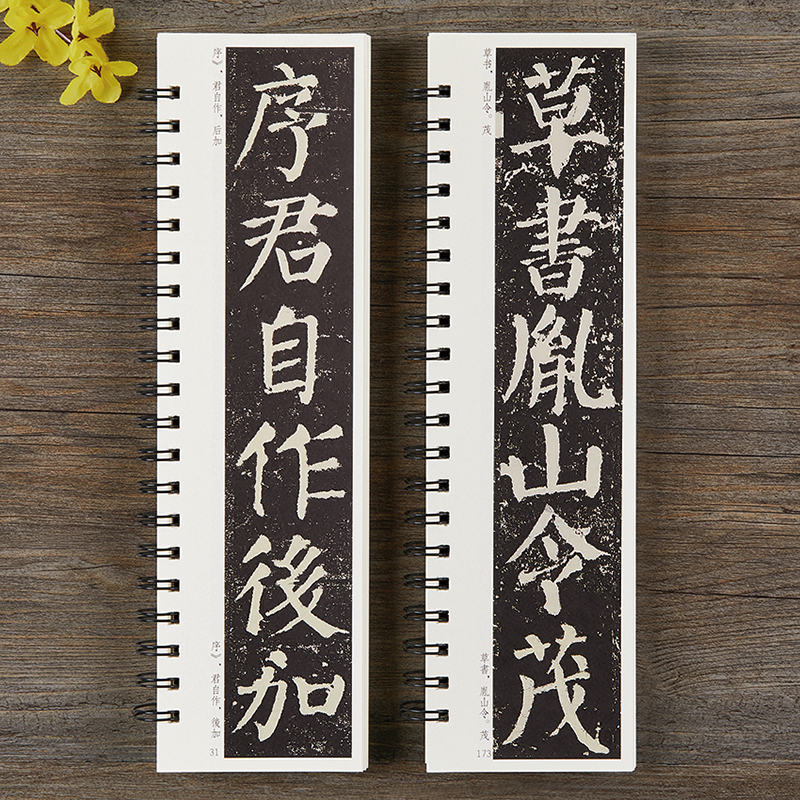 序》，君自作，后加
序君自作後加
序》，君自作，後加
31
草书，胤山令。茂
草書胤山令茂
草書，胤山令。茂
173